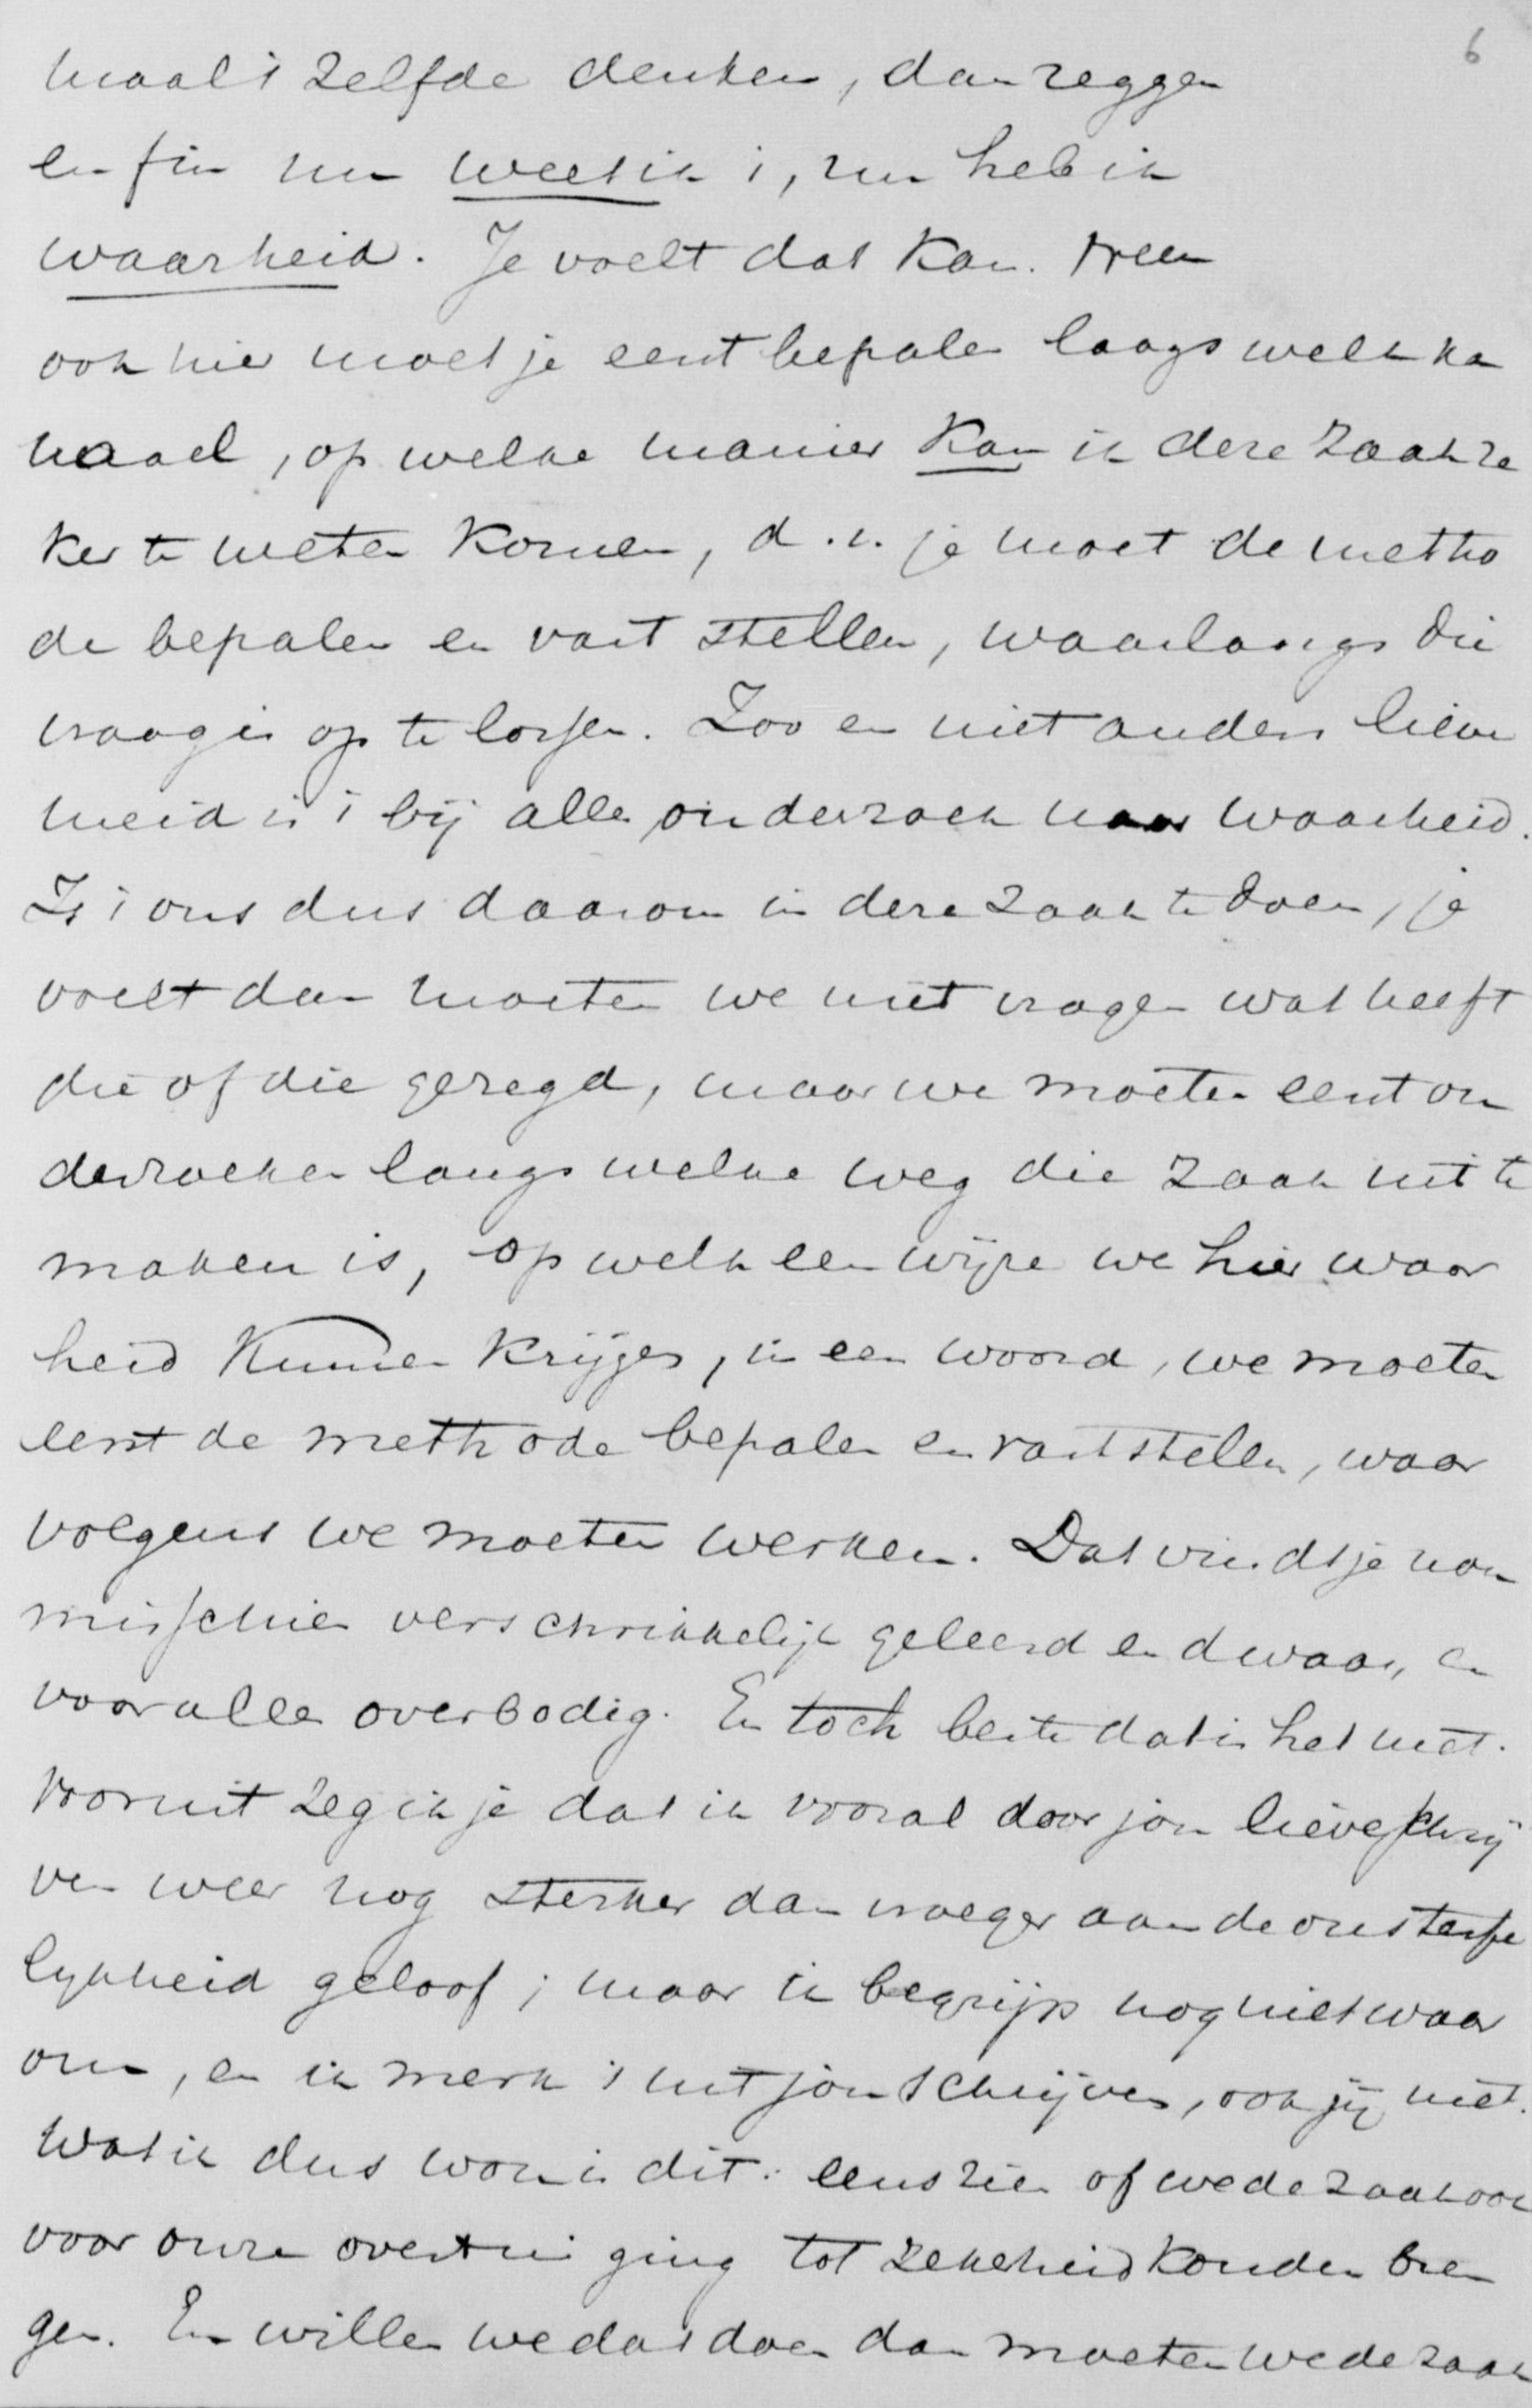 6
maal 't zelfde denken, dan zeggen
enfin nu weet ik 't, nu heb ik
waarheid. Je voelt dat kan. Neen
ook hier moet je eerst bepalen langs welk ka
naal, op welke manier kan ik deze zaak ze
ker te weten komen, d. i. je moet de metho
de bepalen en vast stellen, waarlangs die
vraag is op te lossen. Zoo en niet anders lieve
meid is 't bij alle onderzoek naar waarheid.
Is 't ons dus daarom in deze zaak te doen, je
voelt dan moeten we niet vragen wat heeft
die of die gezegd, maar we moeten eerst on
derzoeken langs welke weg die zaak uit te
maken is, op welk een wijze we hier waar
heid kunnen krijgen, in een woord, we moeten
eerst de methode bepalen en vaststellen, waar
volgens we moeten werken. Dat vindt je nou
misschien verschrikkelijk geleerd en dwaas, en
vooral overbodig. En toch beste dat is het niet.
Vooruit zeg ik je dat ik vooral door jou lieve schrij
ven weer nog sterker dan vroeger aan de onsterfe
lykheid geloof; maar ik begrijp nog niet waar
om, en ik merk 't uit jou schrijven, ook jij niet.
Wat ik dus wou is dit: eens zien of we de zaak ook
voor onze overtuiging tot zekerheid konden bren
gen. En willen we dat doen dan moeten we de zaak